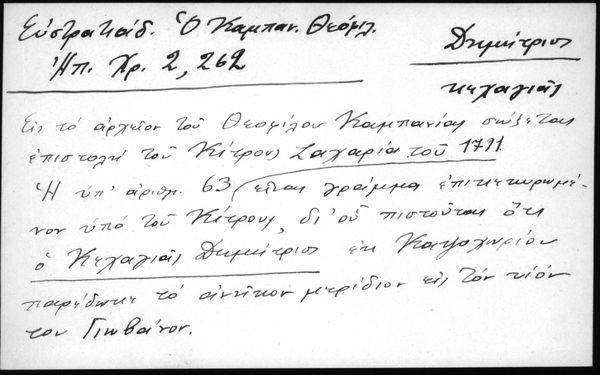 Εὐστρατιάδ. Ὁ Καμπαν. Θεόφιλ.
Ἠπ. Χρ. 2, 262
Δημήτριος
κεχαγιᾶς
Εἰς τό ἀρχεῖον τοῦ Θεοφίλου Καμπανίας σώζεται
ἐπιστολή τοῦ Κίτρους Ζαχαρία τοῦ 1791
Ἡ ὑπ' ἀριθμ. 63 εἶναι γράμμα ἐπικεκυρωμέ-
νον ὑπό τοῦ Κίτρους, δι' οὗ πιστοῦται ὅτι
ὁ Κεχαγιᾶς Δημήτριος ἐκ Καψοχωρίου
παρέδωκε τό ἀνῆκον μερίδιον εἰς τόν υἱόν
του Γιωβάνον.